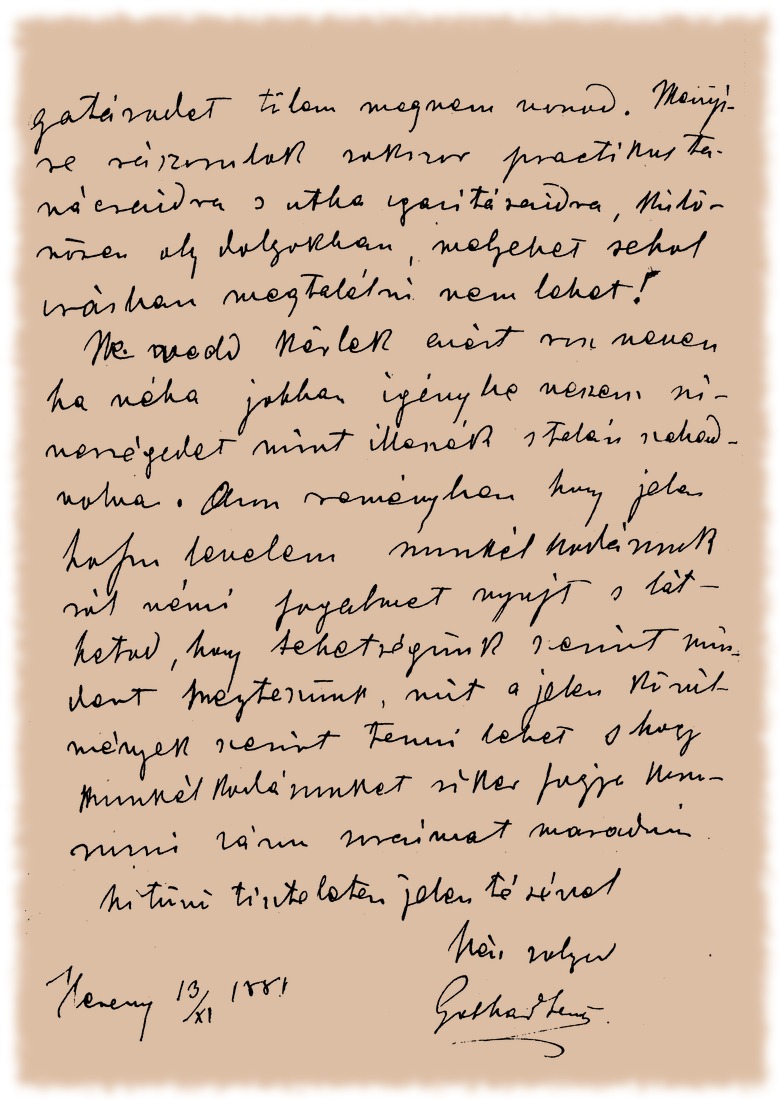 gatásodat tőlem megnem vonod. Mennyi-
re rászorulok sokszor practikus ta-
nácsaidra s utba igazitásaidra, külö-
nösen oly dolgokban, melyeket sehol
irásban megtalálni nem lehet!
Ne vedd kérlek ezért rosz neven
ha néha jobban igénybe veszem szi-
vességedet mint illenék s talán szabad-
volna. Azon reményben hogy jelen
levelem munkálkodásunk
ról némi fogalmat nyujt s lát-
hatod, hogy tehetségünk szerint min-
dent megteszünk, mit a jelen körül-
mények szerint tenni lehet s hogy
munkálkodásunkat siker fogja
zárom soraimat maradván
kitünő tisztelatem jelentésével
kész szolgád
Hereny 13/XI 1881
Gothard Jenő